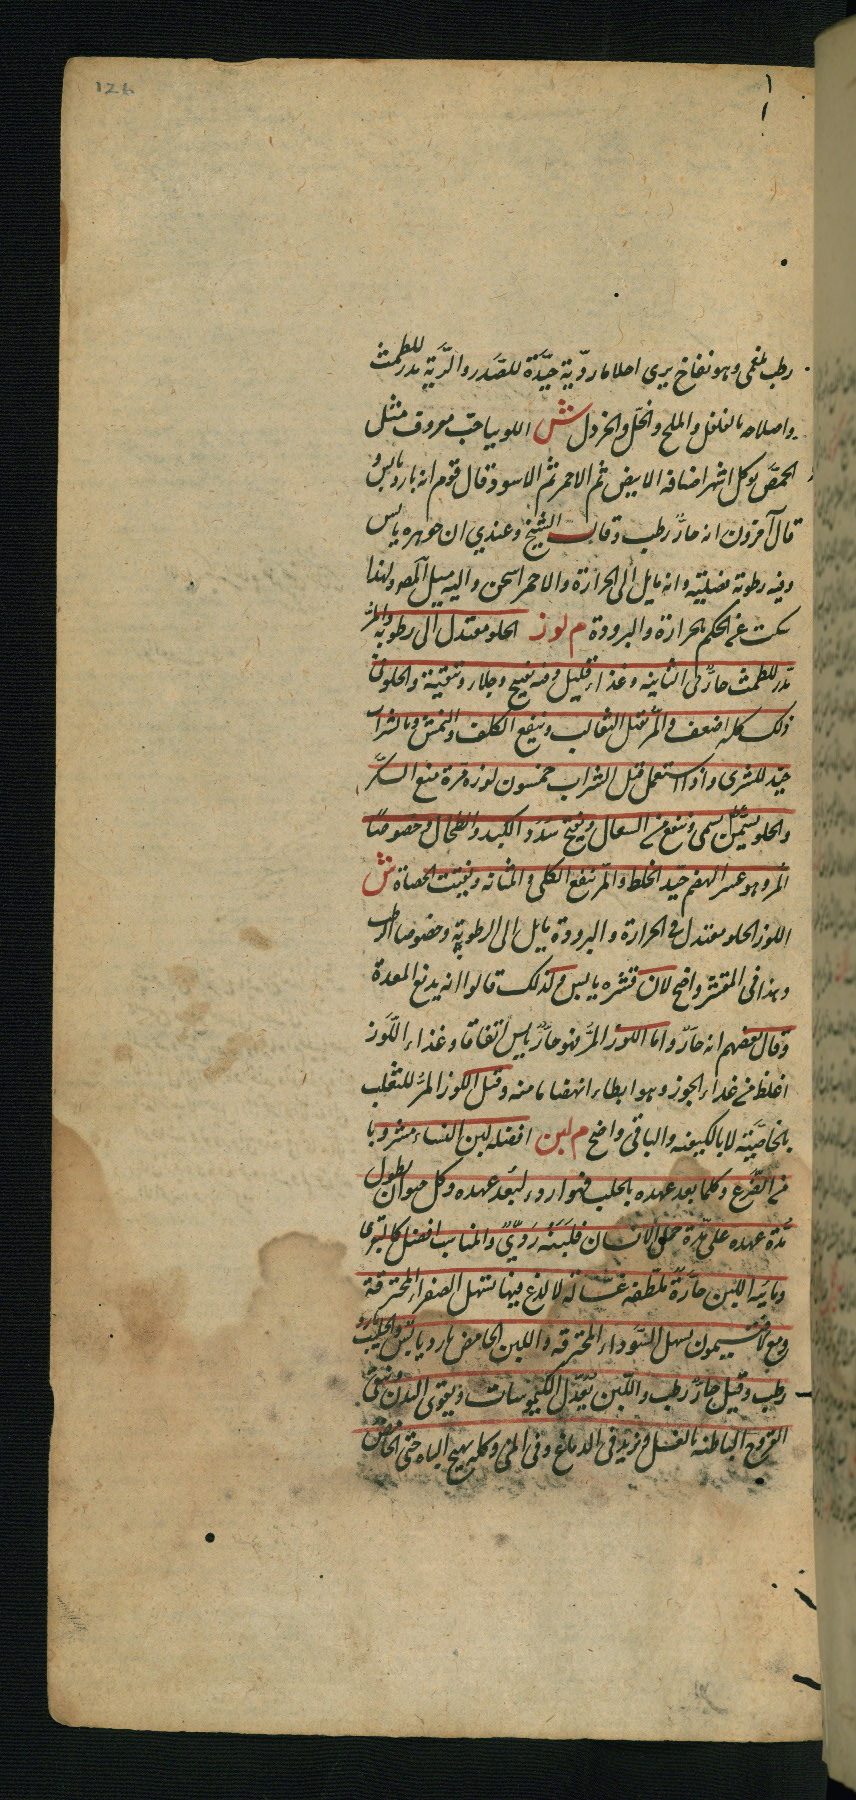 126
رطب بلغمى وهو نفاخ يرى احلاما رديّة جيّدة للصّدر والرّية مدرّ للطمث
واصلاحه بالفلفل والملح والخلّ والخردل ش اللوبيا حبّ معروف مثل
الحمّص يوكل اشهر اصنافه الابيض ثم الاحمر ثم الاسود قال قوم انه بارد يابس و
قال آخرون انه حارّ رطب وقال الشيخ وعندي ان جوهره يابس
وفيه رطوبة فضليّة وانه مايل الى الحرارة والاحمر اسخن واليه ميل المصـ ولهذا
سكت عن الحكم بالحرارة والبرودة م لوز الحلو معتدل الى رطوبة والمرّ
مدّر للطمث حارّ فى الثانية وغذاؤه قليل وفيه تفتيح وجلاء وتنقية والحلو فى
ذلك كله اضعف والمرّ يقتل الثعالب وينفع الكلف والنمش وبالشراب
جيّد للشرى واذا استعمل قبل الشراب خمسون لوزة مرّة منع السكر
والحلو يسمّن وينفع من السعال ويفتح سدد الكبد والطحال وخصوصا
المرّ وهو عسر الهضم جيّد الخلط والمرّ ينفع الكلى والمثانة ويفتت الحصاة ش
اللوز الحلو معتدل فى الحرارة والبرودة مايل الى الرطوبة وخصوصا الرطب
وهذا فى المقشر واضح لان قشره يابس وكذلك قالوا انه يدبغ المعدة
وقال بعضهم انه حارّ واما اللوز المرّ فهو حارّ يابس اتفاقا وغذاء اللّوز
اغلظ من غذاء الجوز وهو ابطاء انهضاما منه وقتل اللوز المرّ للثعلب
بالخاصيّة لا بالكيفية والباقى واضح م لبن افضله لبن النساء مشروبا
من الضّرع وكلما بعد عهده بالحلب فهو اردء لبعد عهده وكل حيوان يطول
مدّة عهده على مدّة حمل الانسان فلبنه رديّ والمناسب افضل كالبقر
ومايّة اللبن حارّة ملطّفة غسّالة لا لذع فيها تسهل الصفراء المحترقة
ومع الافتيمون تسهل السّوداء المحترقة واللبن الحامض بارد يابس والحليب بارد
رطب وقيل حارّ رطب واللّبن يعدّل الكيموسات ويقوى البدن ينقى
القروح الباطنة بالغسل ويزيد فى الدماغ وفى المنى وكله يهيج الباه حتى الحامض